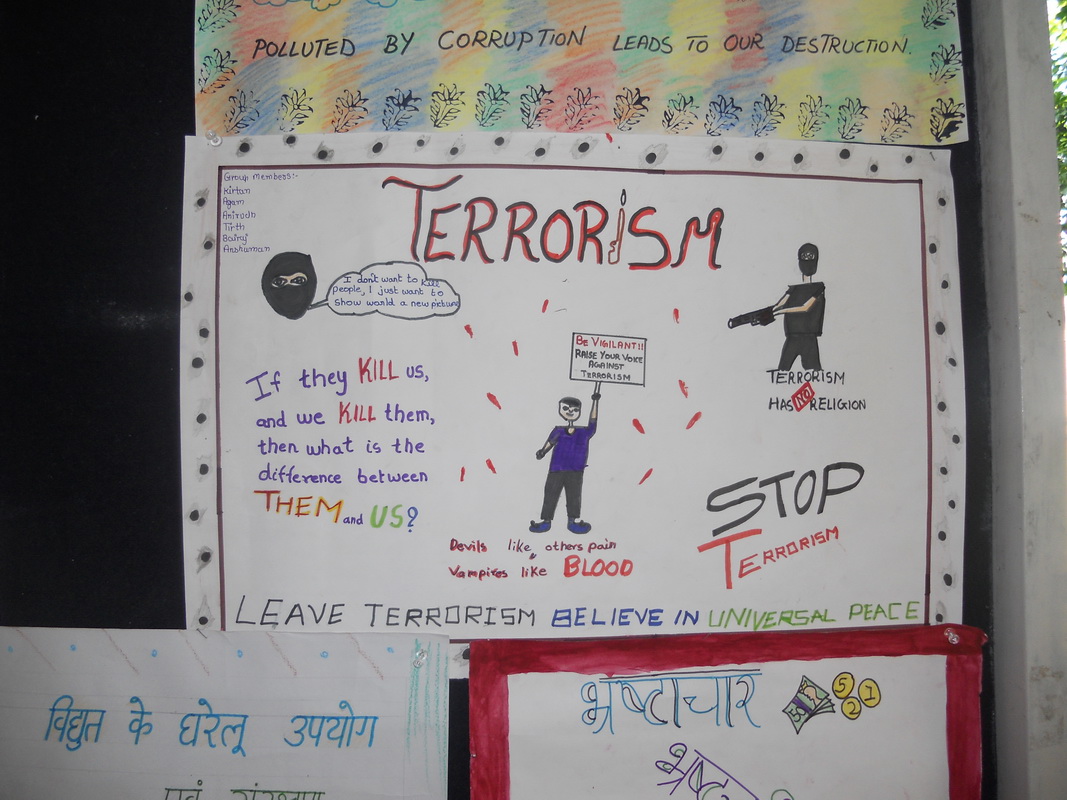 POLLUTED BY CORRUPTION LEADS TO OUR DESTRUCTION.
Group Members:-
Kirtan
Agam
Anirudh
Tirth
Balraj
Anshuman
TERRORISM
I don't want to kill
people, I just want to
show world a new picture
BE VIGILANT!!
RAISE YOUR VOICE
AGAINST
TERRORISM
TERRORISM
HAS NO RELIGION
If they KILL us,
and we KILL them,
then what is the
difference between
THEM and US?
STOP
TERRORISM
Devils like others pain
Vampires like BLOOD
LEAVE TERRORISM BELIEVE IN UNIVERSAL PEACE
विद्युत के घरेलू उपयोग
एवं संरक्षण
भ्रष्टाचार
5 1
2
भ्रष्ट